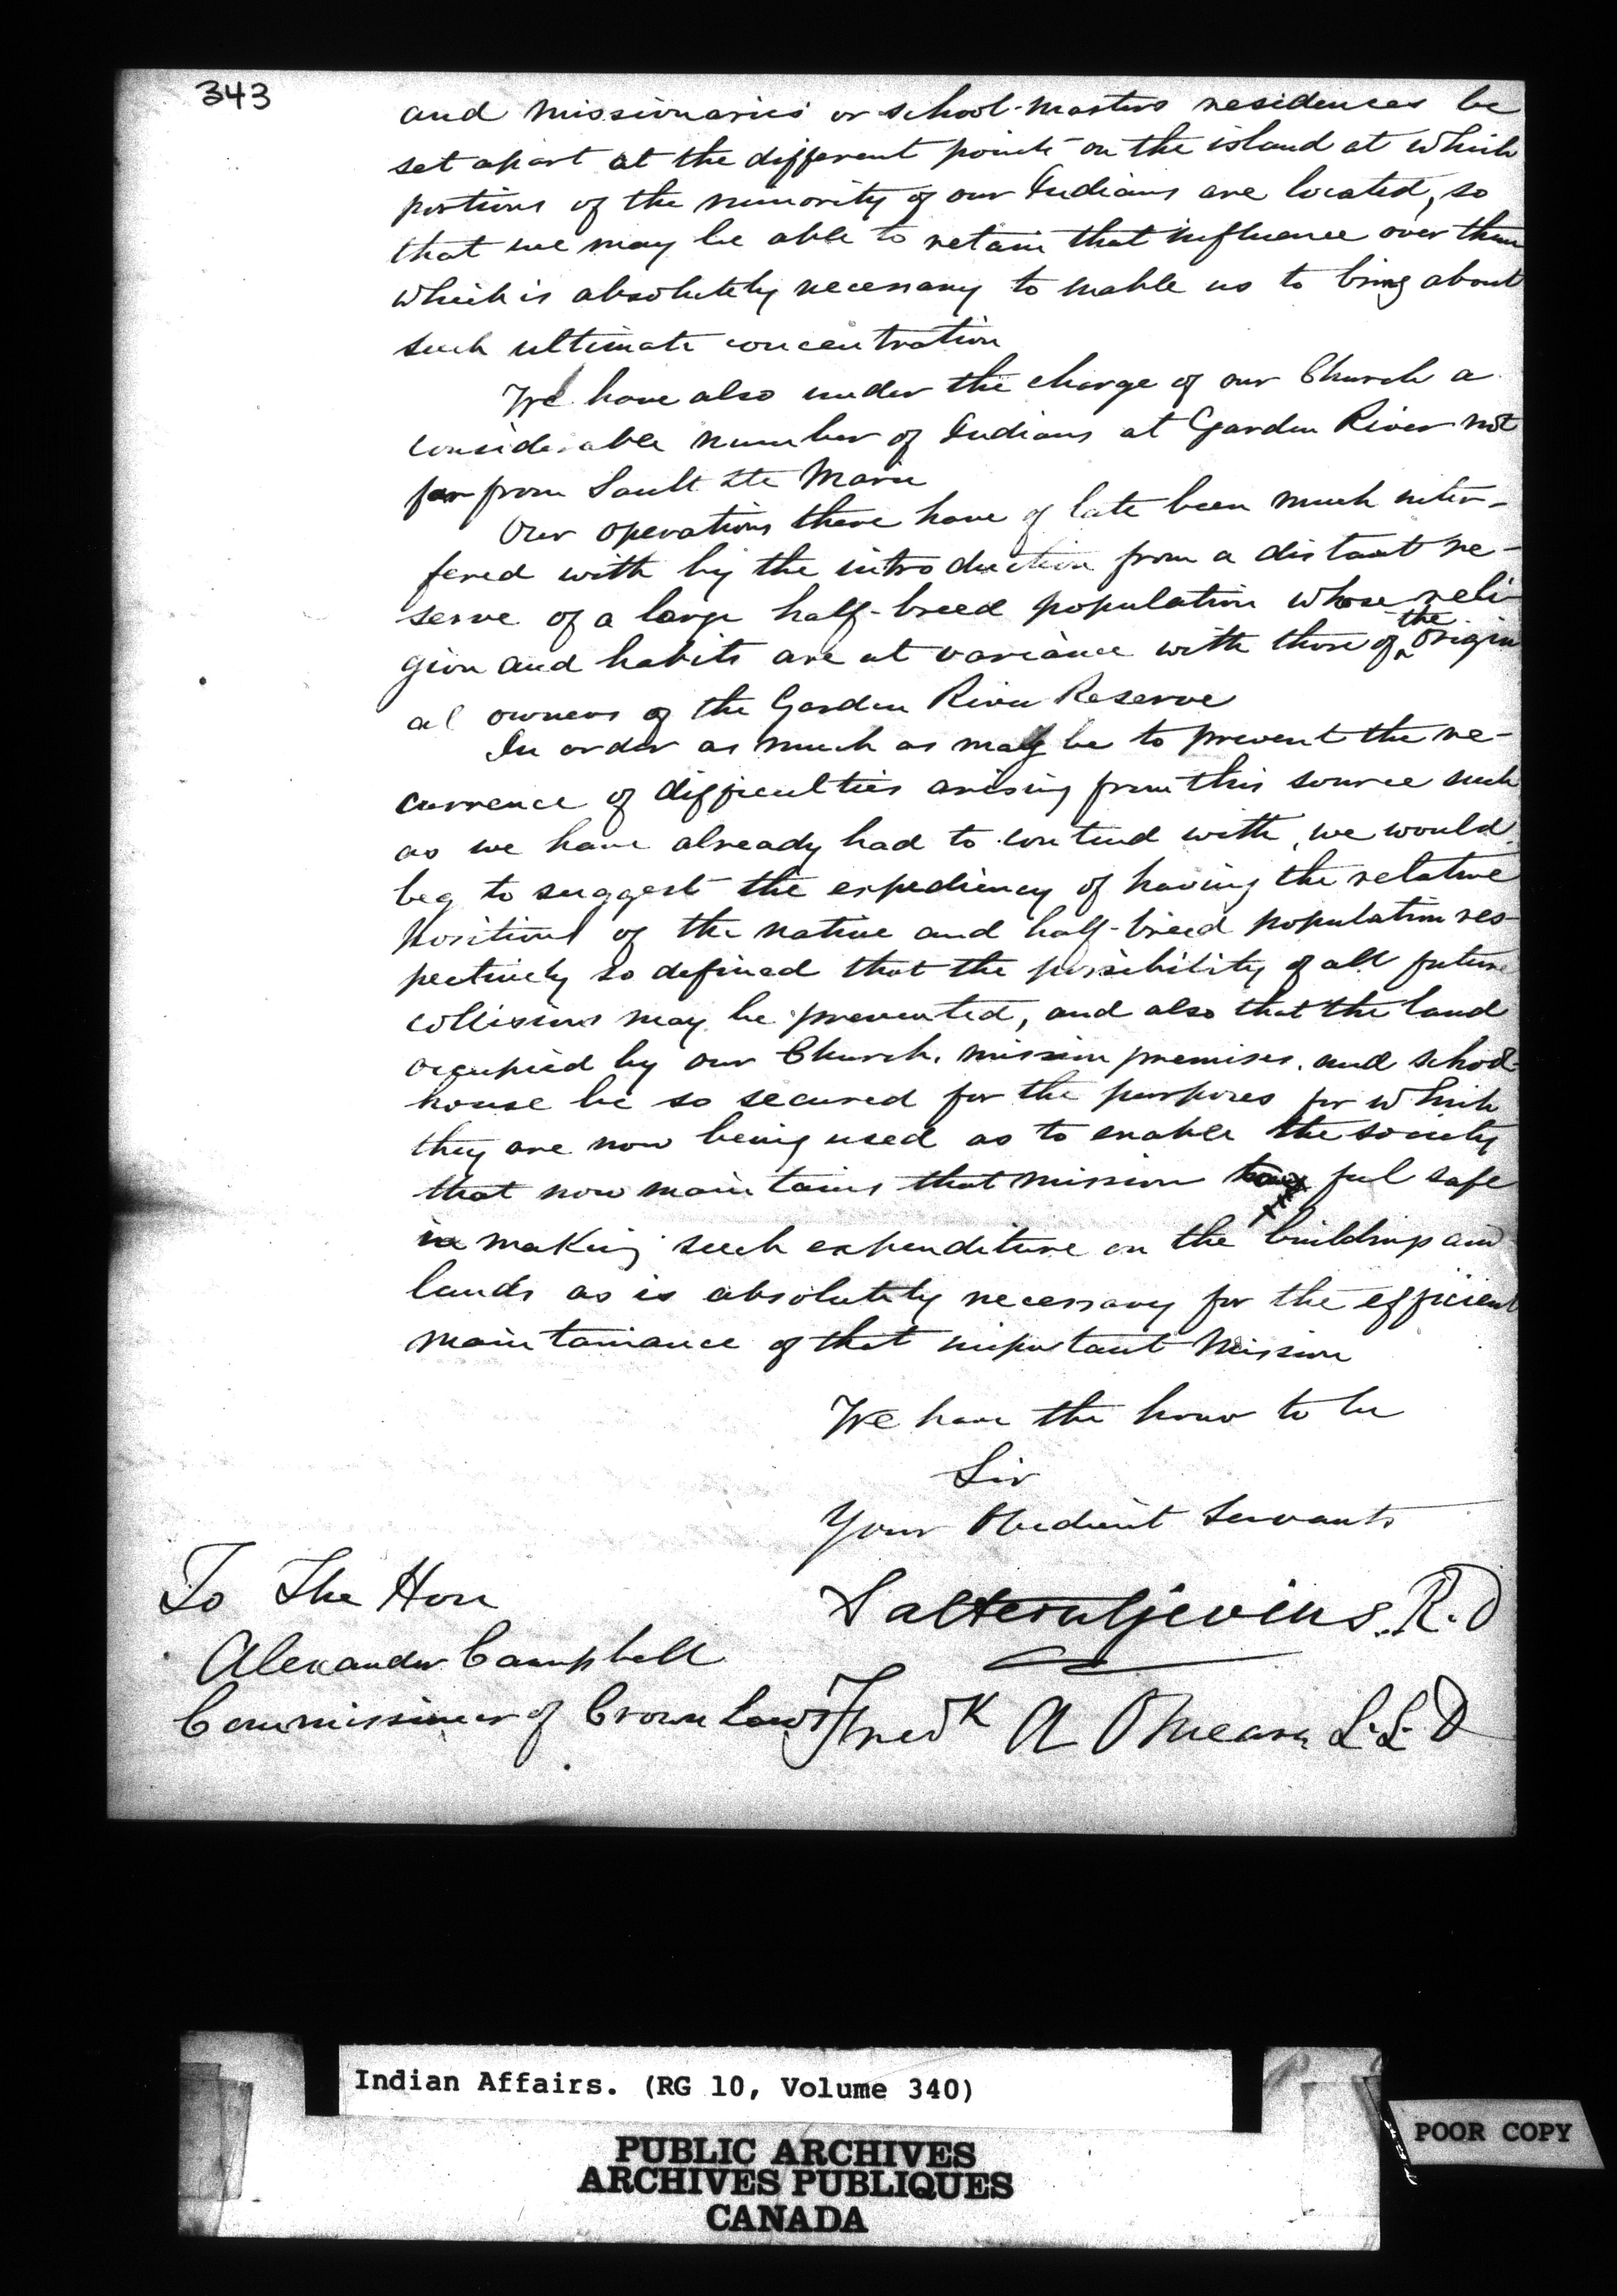 343
and missionaries or school-masters residences be
set apart at the different points on the island at which
portions of the minority of our Indians are located, so
that we may be able to retain that influence over them
which is absolutely necessary to enable us to bring about
such ultimate concentration
We have also under the charge of our Church a
considerable number of Indians at Garden River not
far from Sault Ste Marie
Our operations there have of late been much inter-
fered with by the introduction from a distant re-
serve of a large half-breed population whose reli-
gion and habits are at variance with those of the origin
al owners of the Garden River Reserve
In order as much as may be to prevent the re-
currence of difficulties arising from this source such
as we have already had to contend with, we would
beg to suggest the expediency of having the relative
positions of the native and half-breed population res-
pectively so defined that the possibility of all future
collisions may be prevented, and also that the land
occupied by our Church, mission premises, and school-
house be so secured for the purposes for which
they are now being used as to enable the society
that now maintains that mission to feel safe
in making such expenditure on the buildings and
lands as is absolutely necessary for the efficient
maintainance of that important Mission
We have the honor to be
Sir
Your Obedient Servants
Saltern Givins. R.D
Fredk A OMeara L.L.D
To The Hon
Alexander Campbell
Commissioner of Crown
Indian Affairs. (RG 10, Volume 340)
PUBLIC ARCHIVES
ARCHIVES PUBLIQUES
CANADA
POOR COPY